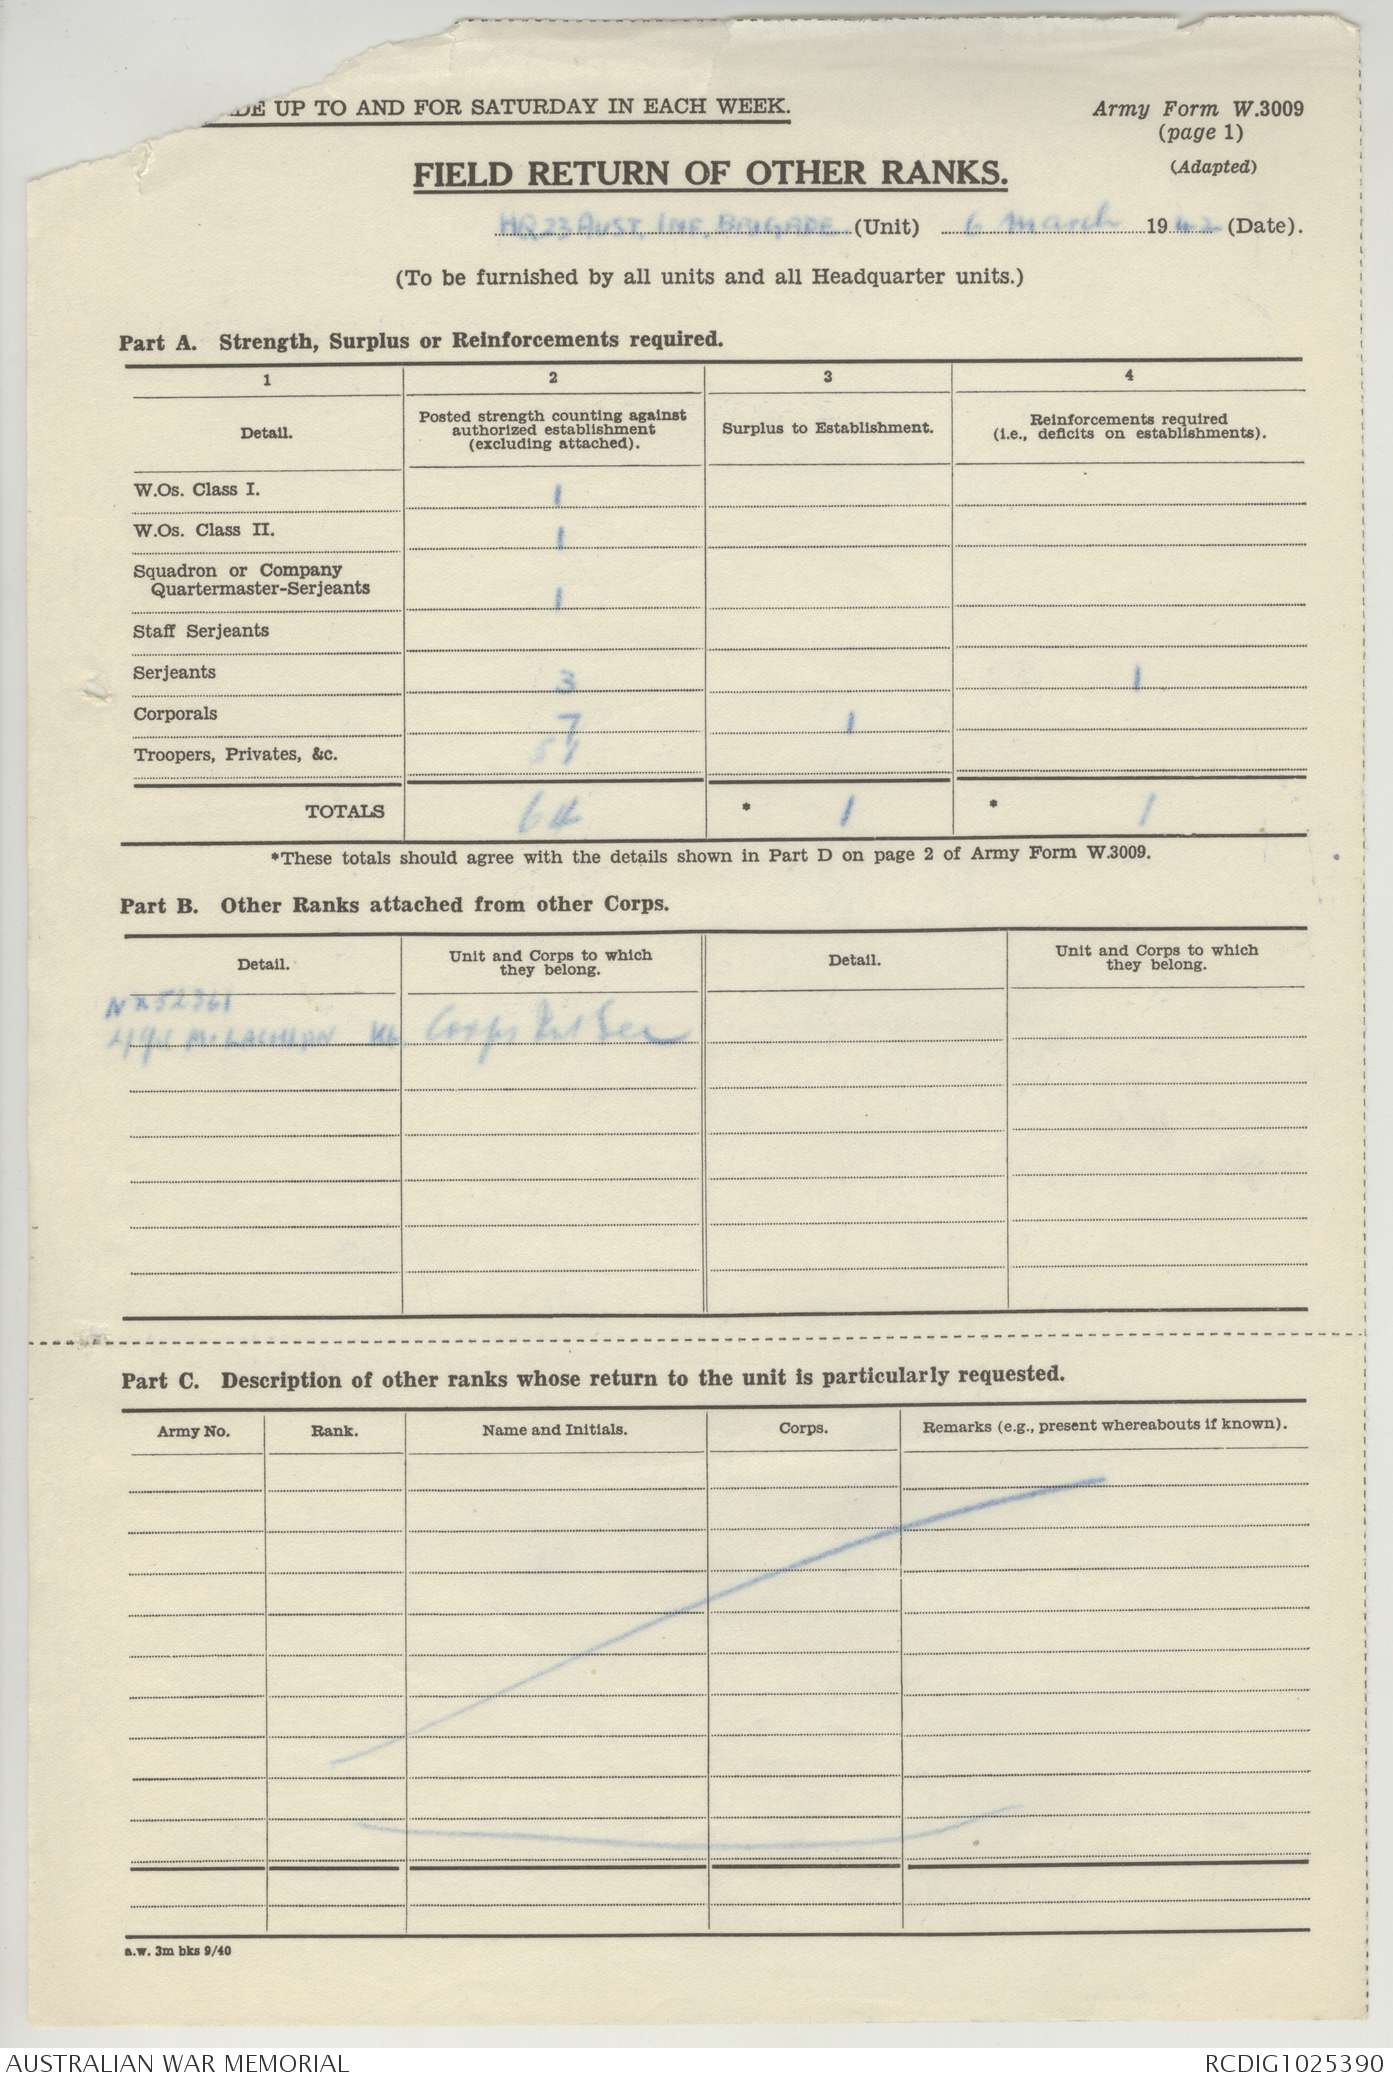 DE UP TO AND FOR SATURDAY IN EACH WEEK.
Army Form W.3009
(page 1)
(Adapted)
FIELD RETURN OF OTHER RANKS.
HQ 23 AUST. INF. BRIGADE (Unit) 6 March 1942 (Date).
(To be furnished by all units and all Headquarter units.)
Part A. Strength, Surplus or Reinforcements required.
1 2 3 4
Detail.
Posted strength counting against
authorized establishment
(excluding attached).
Surplus to Establishment.
Reinforcements required
(i.e., deficits on establishments).
W.Os. Class I. 1
W.Os. Class II. 1
Squadron or Company
Quartermaster-Serjeants 1
Staff Serjeants
Serjeants 3 1
Corporals 7 1
Troopers, Privates, &c. 51
TOTALS 64 * 1 * 1
*These totals should agree with the details shown in Part D on page 2 of Army Form W.3009.
Part B. Other Ranks attached from other Corps.
Detail.
Unit and Corps to which
they belong.
Detail.
Unit and Corps to which
they belong.
NX52361
McLACHLAN Corps
Part C. Description of other ranks whose return to the unit is particularly requested.
Army No. Rank. Name and Initials. Corps. Remarks (e.g., present whereabouts if known).
a.w. 3m bks 9/40
AUSTRALIAN WAR MEMORIAL
RCDIG1025390